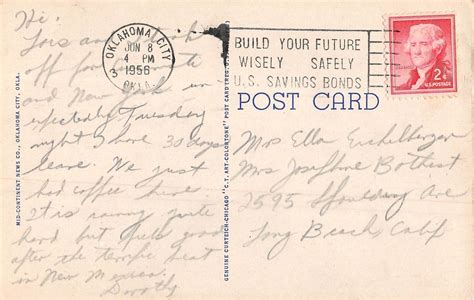 Hi;
Lois and I took
off for
and New York un
expectedly Tuesday
night I have 30 days
leave. We just
had coffee here.
It is raining quite
hard but feels good
after the terrific heat
in New Mexico.
Dorothy
MID-CONTINENT NEWS CO., OKLAHOMA CITY, OKLA.
OKLAHOMA CITY
3
JUN 8
4 PM
1956
OKLA.
BUILD YOUR FUTURE
WISELY SAFELY
U.S. SAVINGS BONDS
2¢
U.S. POSTAGE
POST CARD
GENUINE CURTEICH-CHICAGO "C.T. ART-COLORTONE" POST CARD
Mrs Ella Eichelberger
Mrs Josephine
2595 Spaulding Ave
Long Beach, Calif